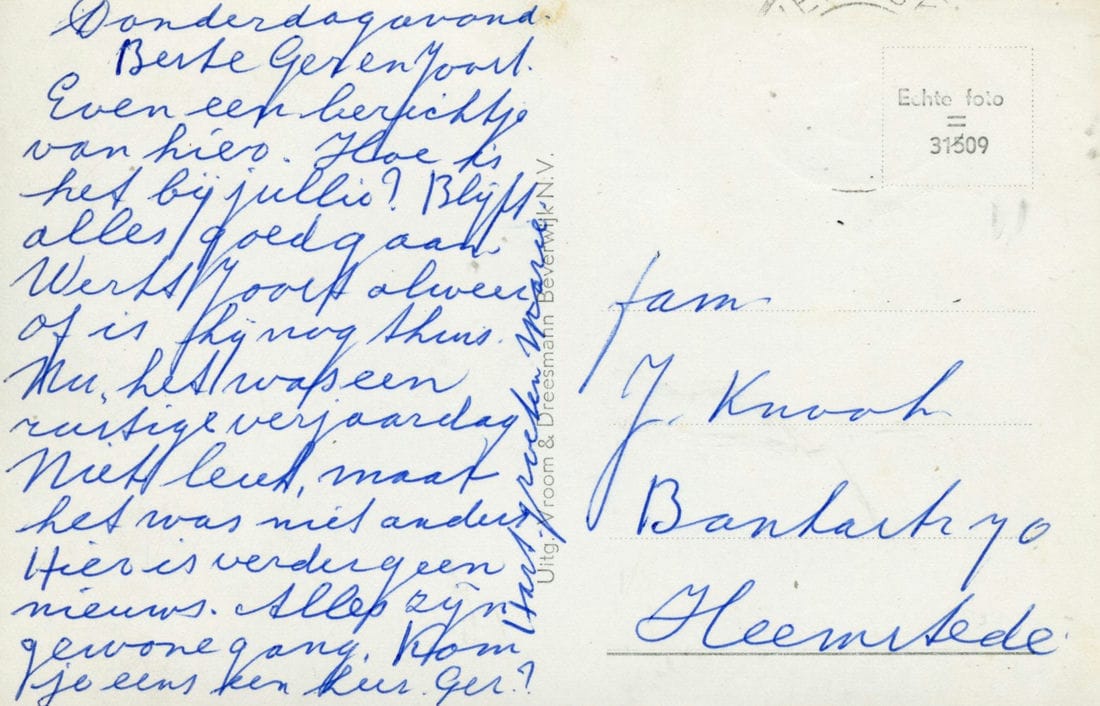 Donderdagavond.
Beste Ger en Joost.
Even een berichtje
van hier. Hoe is
het bij jullie? Blijft
alles goed gaan
Werkt Joost alweer
of is hij nog thuis.
Nu, het was een
rustige verjaardag
Niet leuk, maar
het was niet anders
Hier is verder geen
nieuws. Alles zijn
gewone gang. Kom
je eens een keer Ger.?
Hart. groeten Marie.
Uitg. Vroom & Dreesmann Beverwijk N.V.
Echte foto
=
31509
fam
J. Knook
Bantastr 70
Heemstede